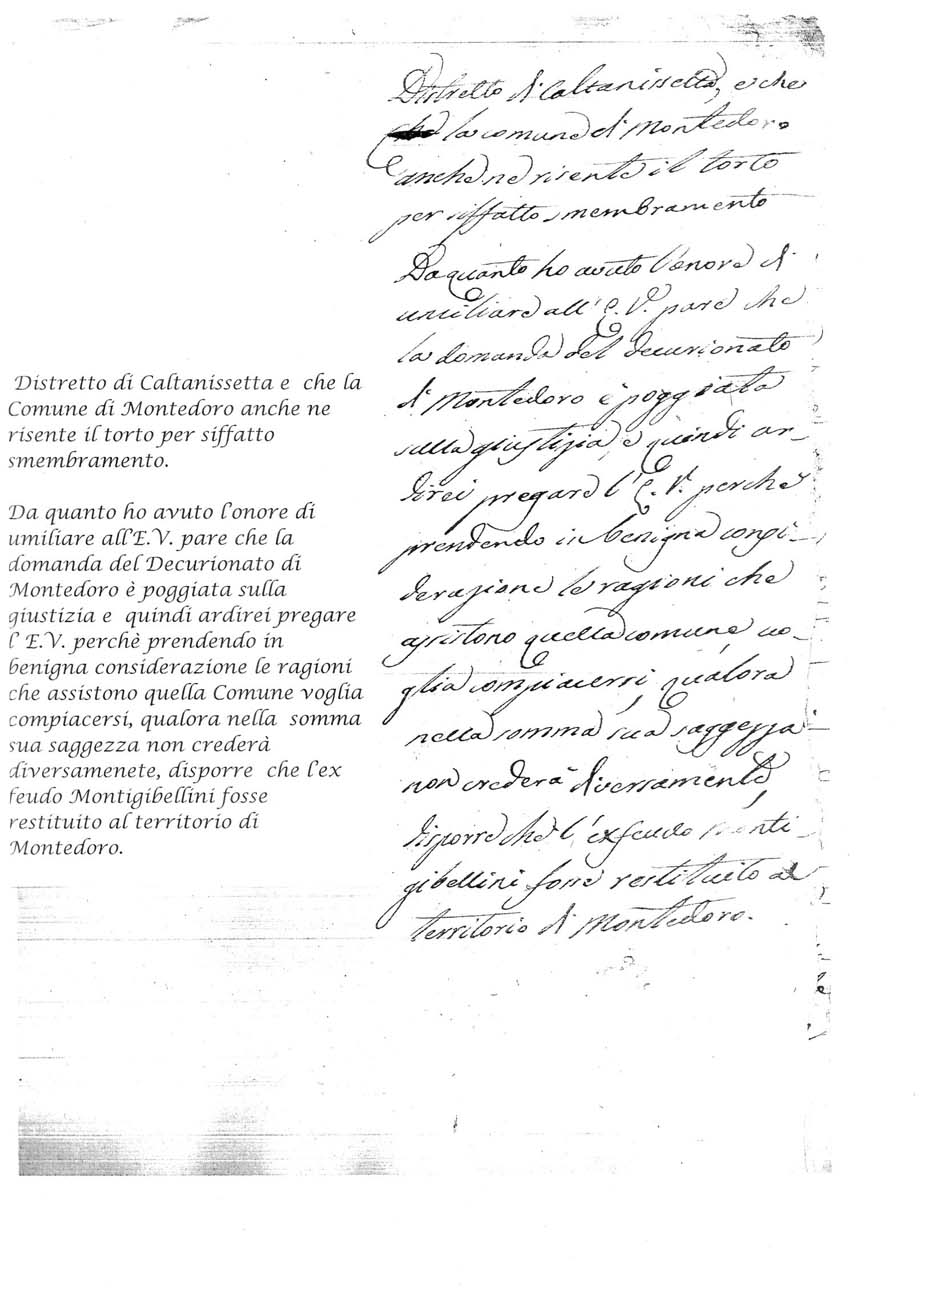 Distretto di Caltanissetta e che la
Comune di Montedoro anche ne
risente il torto per siffatto
smembramento.
Da quanto ho avuto l'onore di
umiliare all'E.V. pare che la
domanda del Decurionato di
Montedoro è poggiata sulla
giustizia e quindi ardirei pregare
l' E.V. perchè prendendo in
benigna considerazione le ragioni
che assistono quella Comune voglia
compiacersi, qualora nella somma
sua saggezza non crederà
diversamenete, disporre che l'ex
feudo Montigibellini fosse
restituito al territorio di
Montedoro.
Distretto di Caltanissetta, e che
la comune di Montedoro
anche ne risente il torto
per siffatto smembramento
Da quanto ho avuto l'onore di
umiliare all'E.V. pare che
la domanda del decurionato
di Montedoro è poggiata
sulla giustizia, e quindi ar_
direi pregare l'E.V. perchè
prendendo in benigna consi_
derazione le ragioni che
assistono quella comune vo_
glia compiacersi, qualora
nella somma sua saggezza
non crederà diversamente,
disporre che l'ex feudo Monti
gibellini fosse restituito al
territorio di Montedoro.